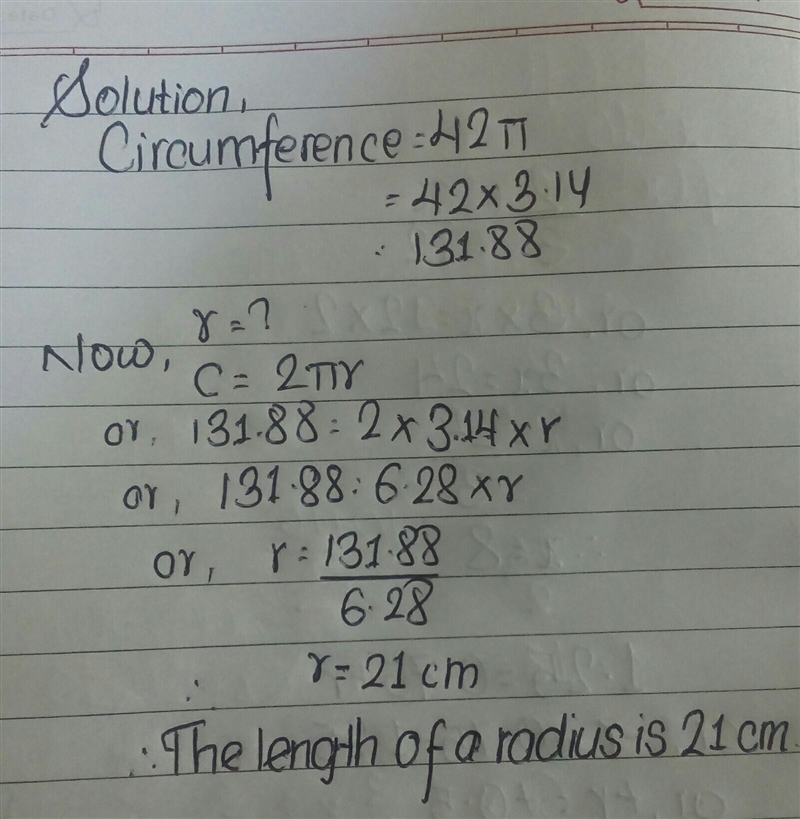 Solution,
Circumference = 42π
= 42 × 3.14
: 131.88
r = ?
Now,
C = 2πr
or, 131.88 = 2 × 3.14 × r
or, 131.88 : 6.28 × r
or, r = 131.88
6.28
∴ r = 21 cm
∴ The length of a radius is 21 cm.